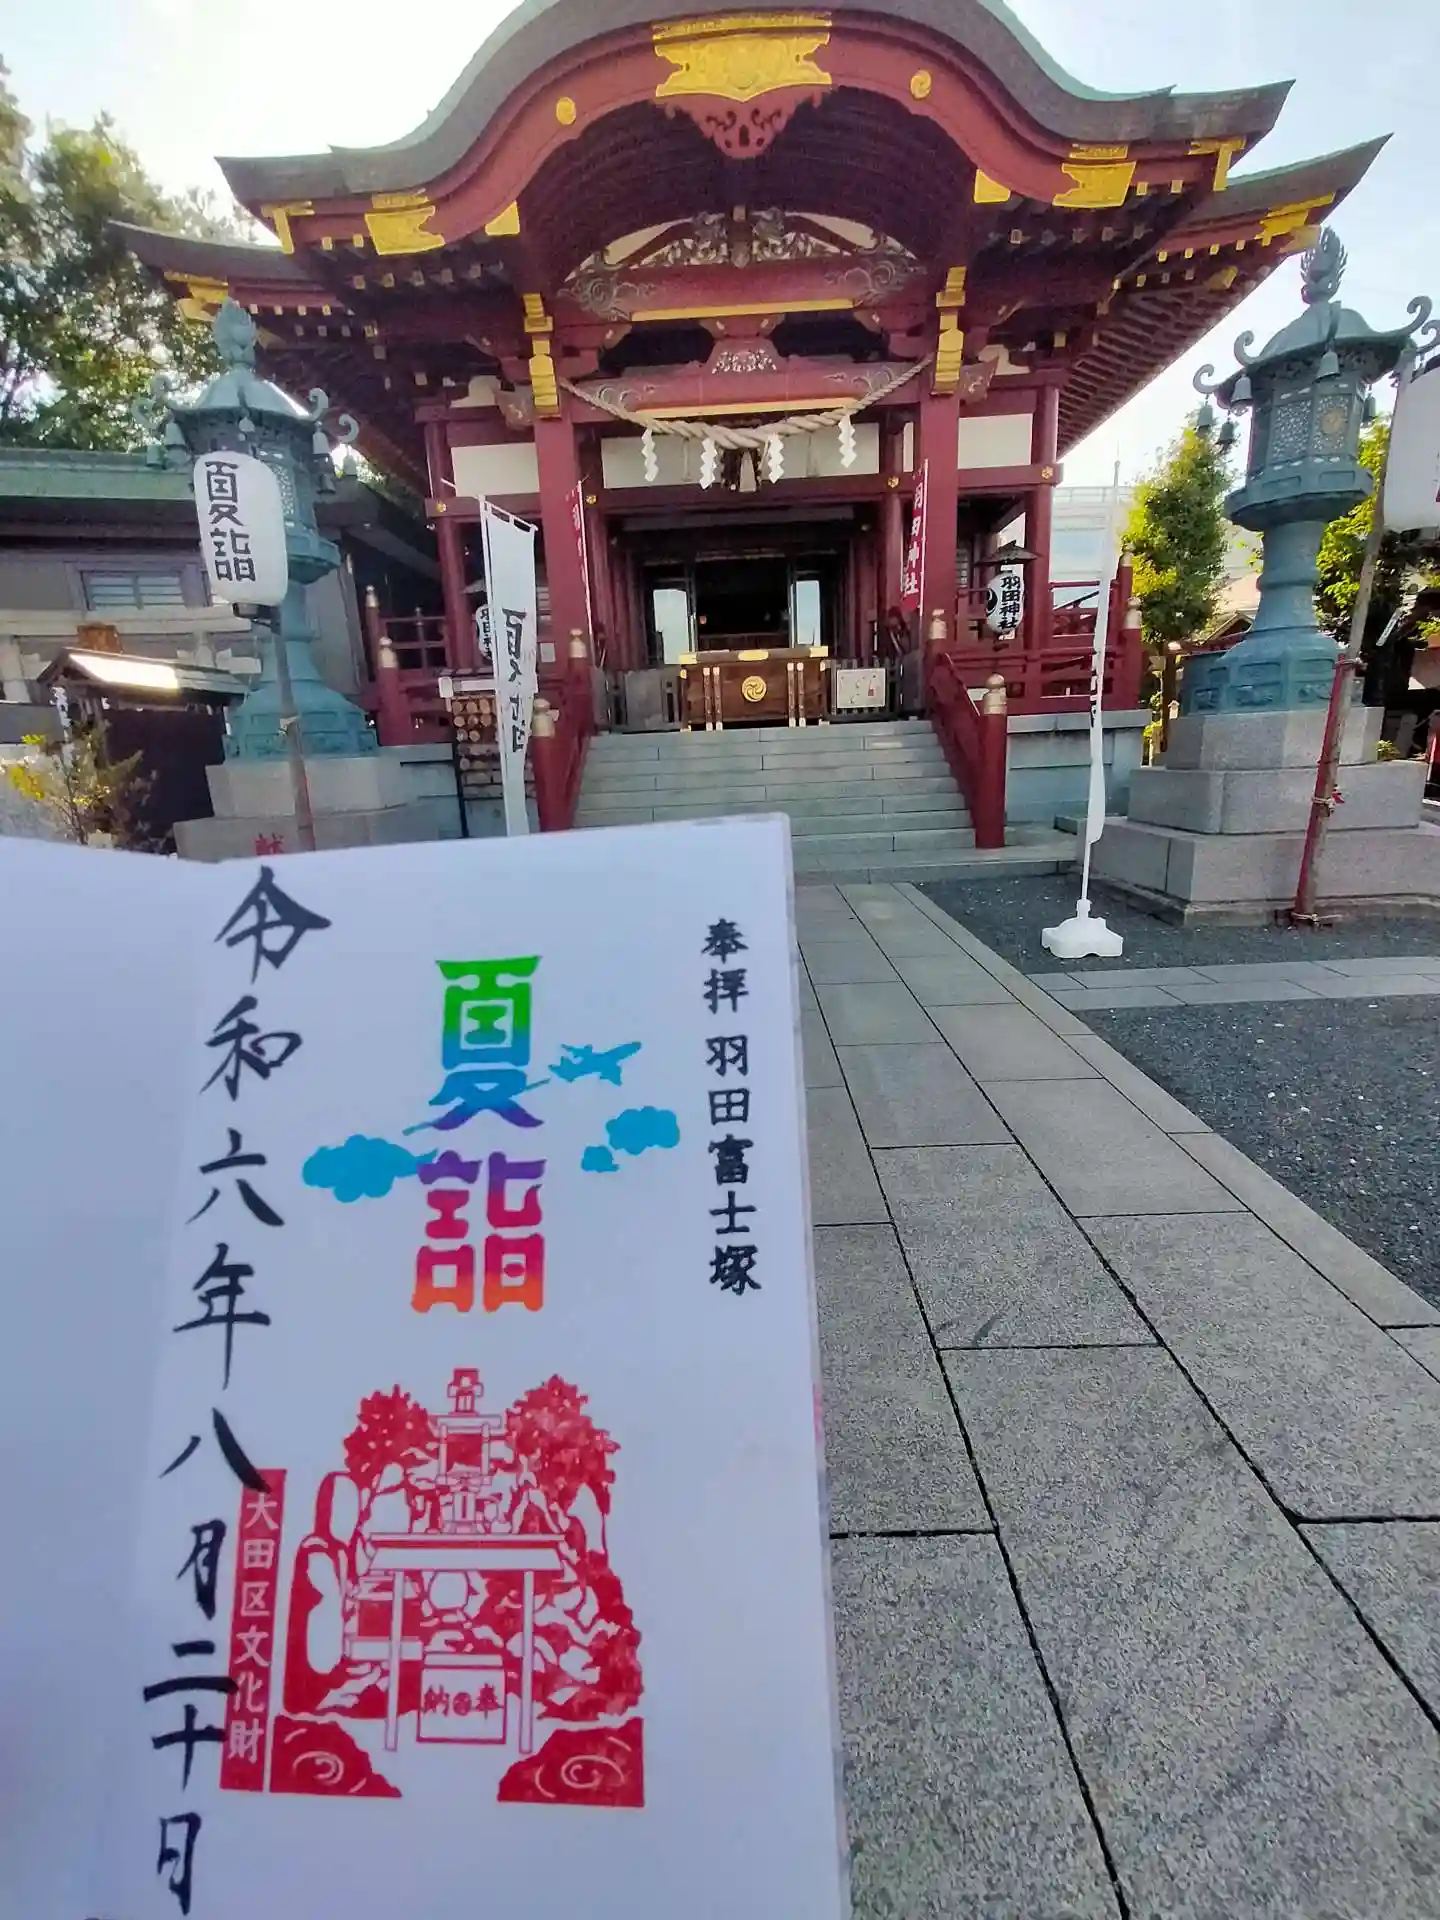 夏詣
夏詣
羽田神社
羽田神社
羽田神社
献
奉拝 羽田富士塚
夏詣
令和六年八月二十日
大田区文化財
奉納